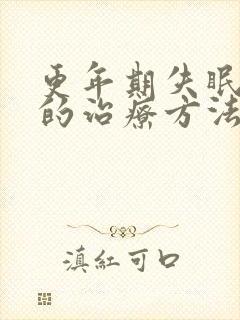 更年期失眠
的治疗方法
滇紅可口